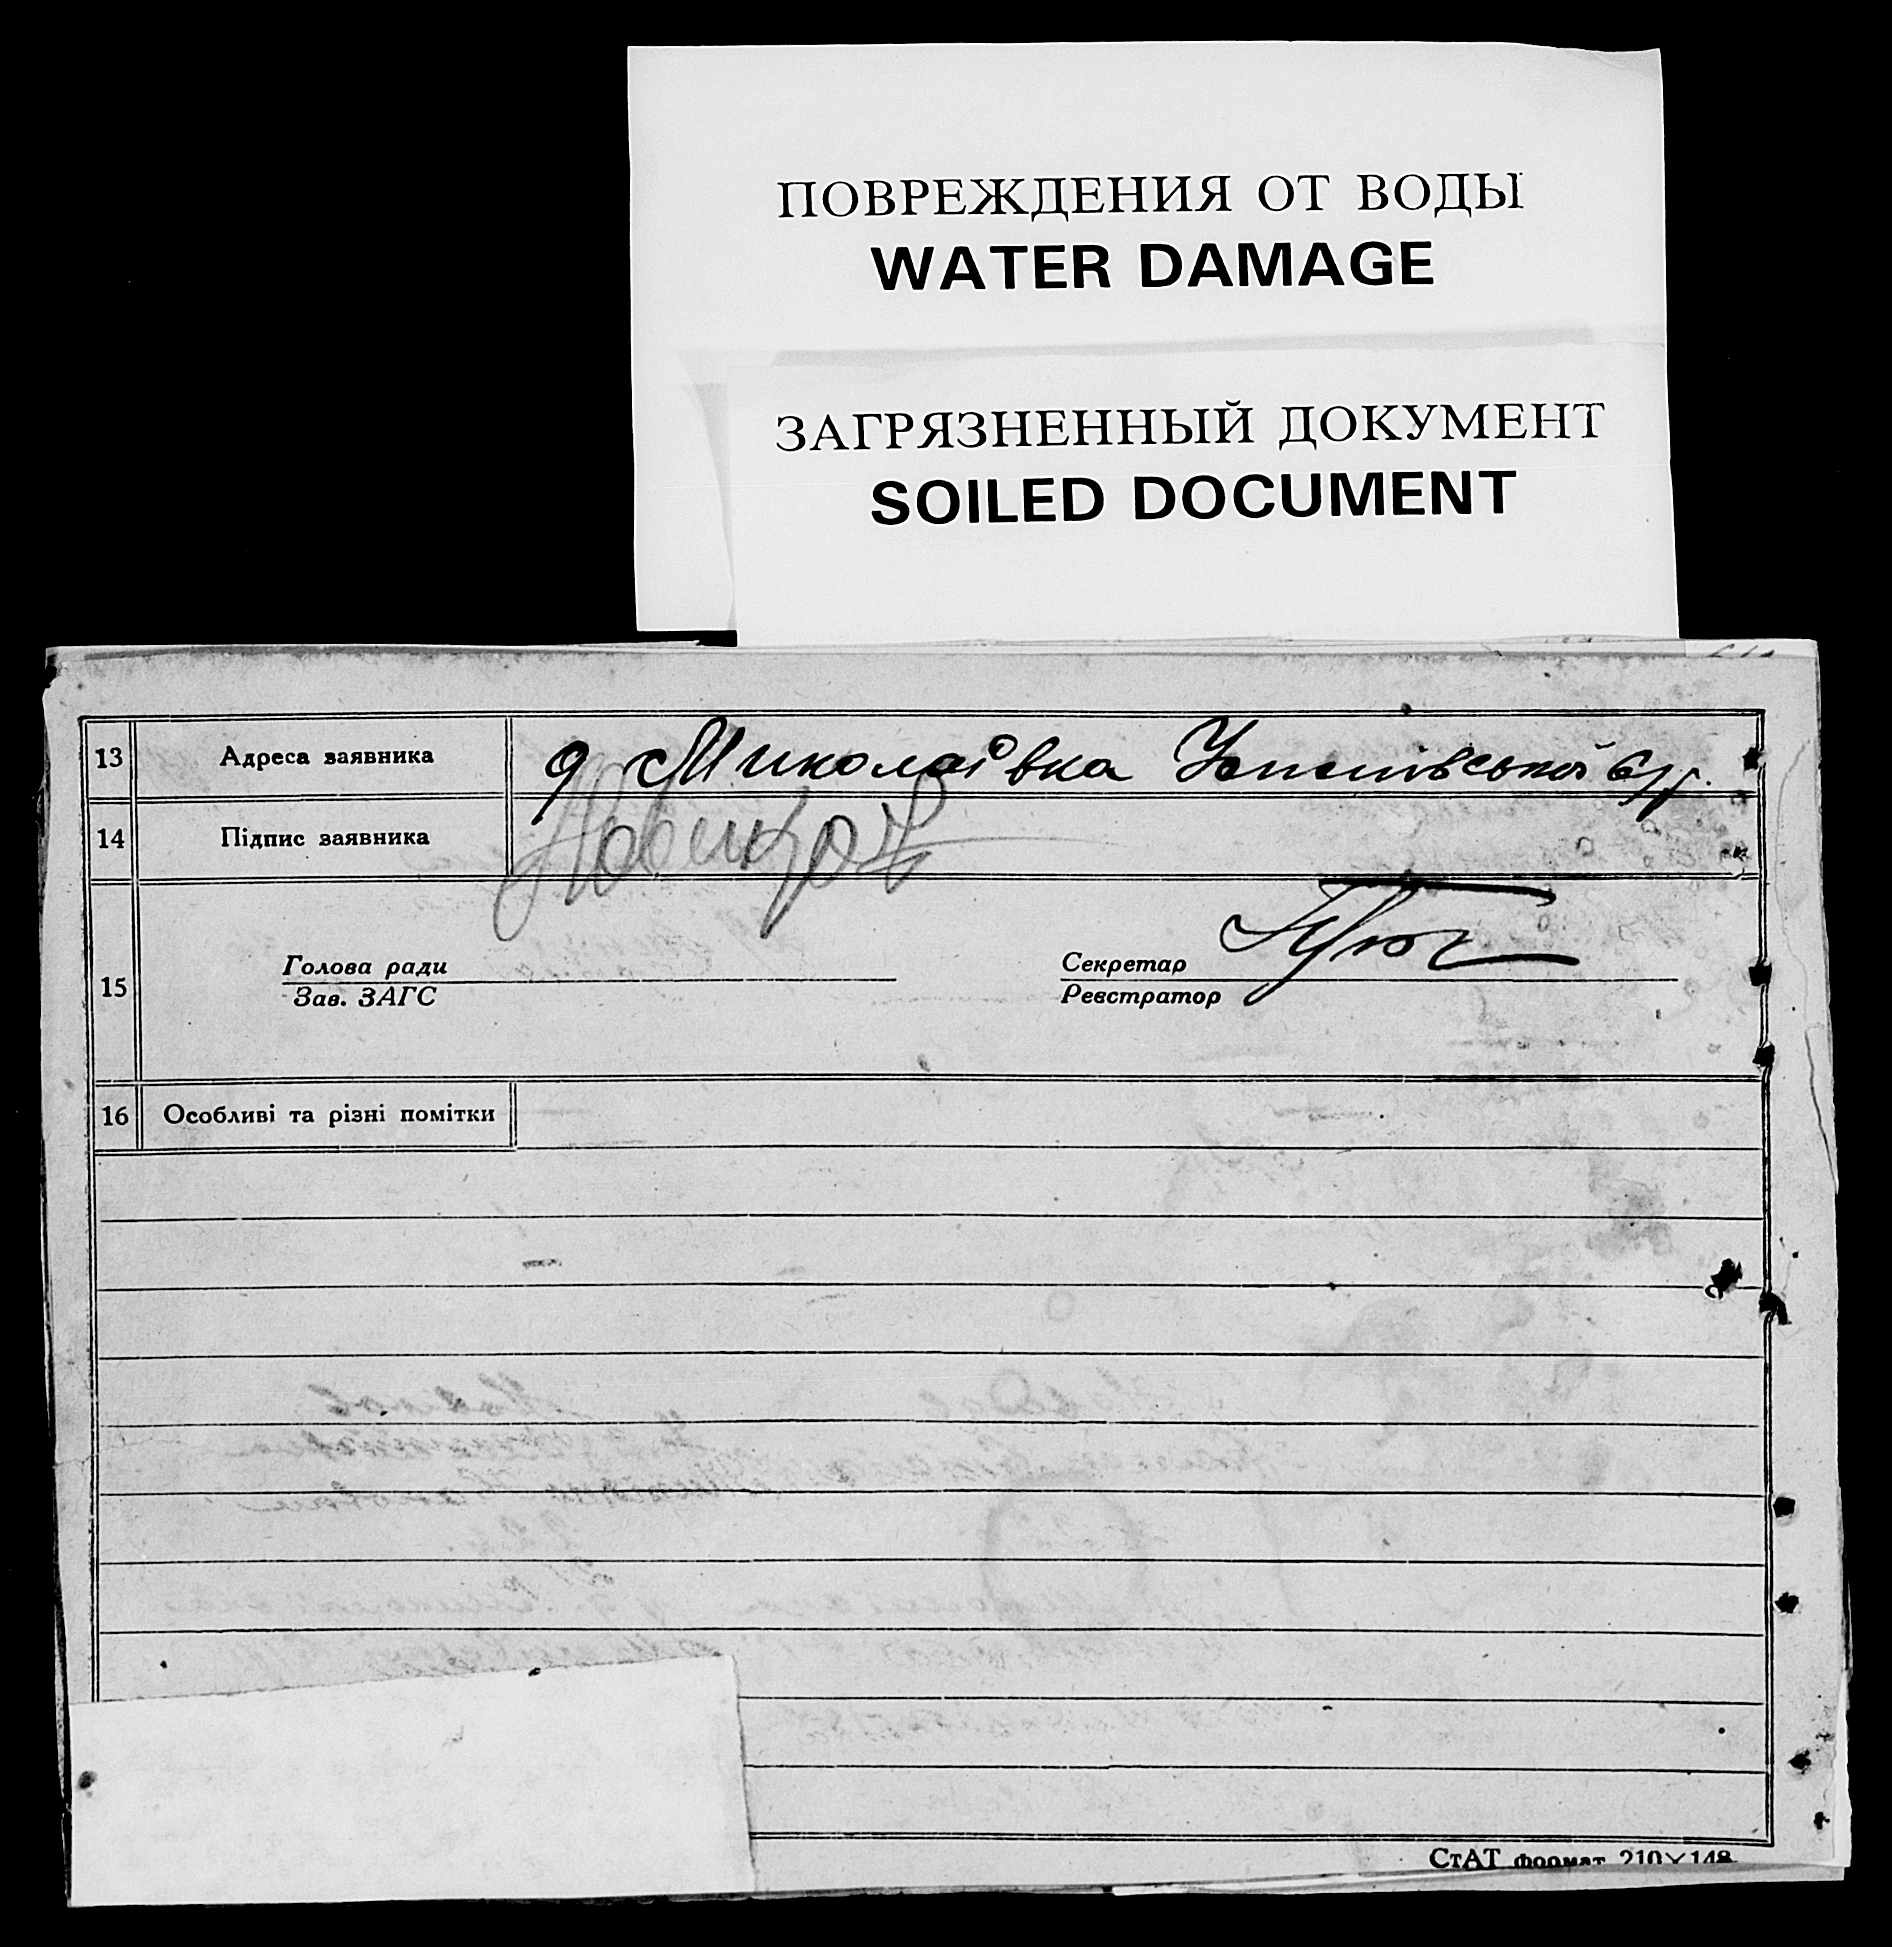 ПОВРЕЖДЕНИЯ ОТ ВОДЫ
WATER DAMAGE
ЗАГРЯЗНЕННЫЙ ДОКУМЕНТ
SOILED DOCUMENT
13 Адреса заявника Миколаївка
14 Підпис заявника
Голова ради Секретар
15
Зав. ЗАГС Реєстратор
16 Особливі та різні помітки
СтАТ формат 210×148